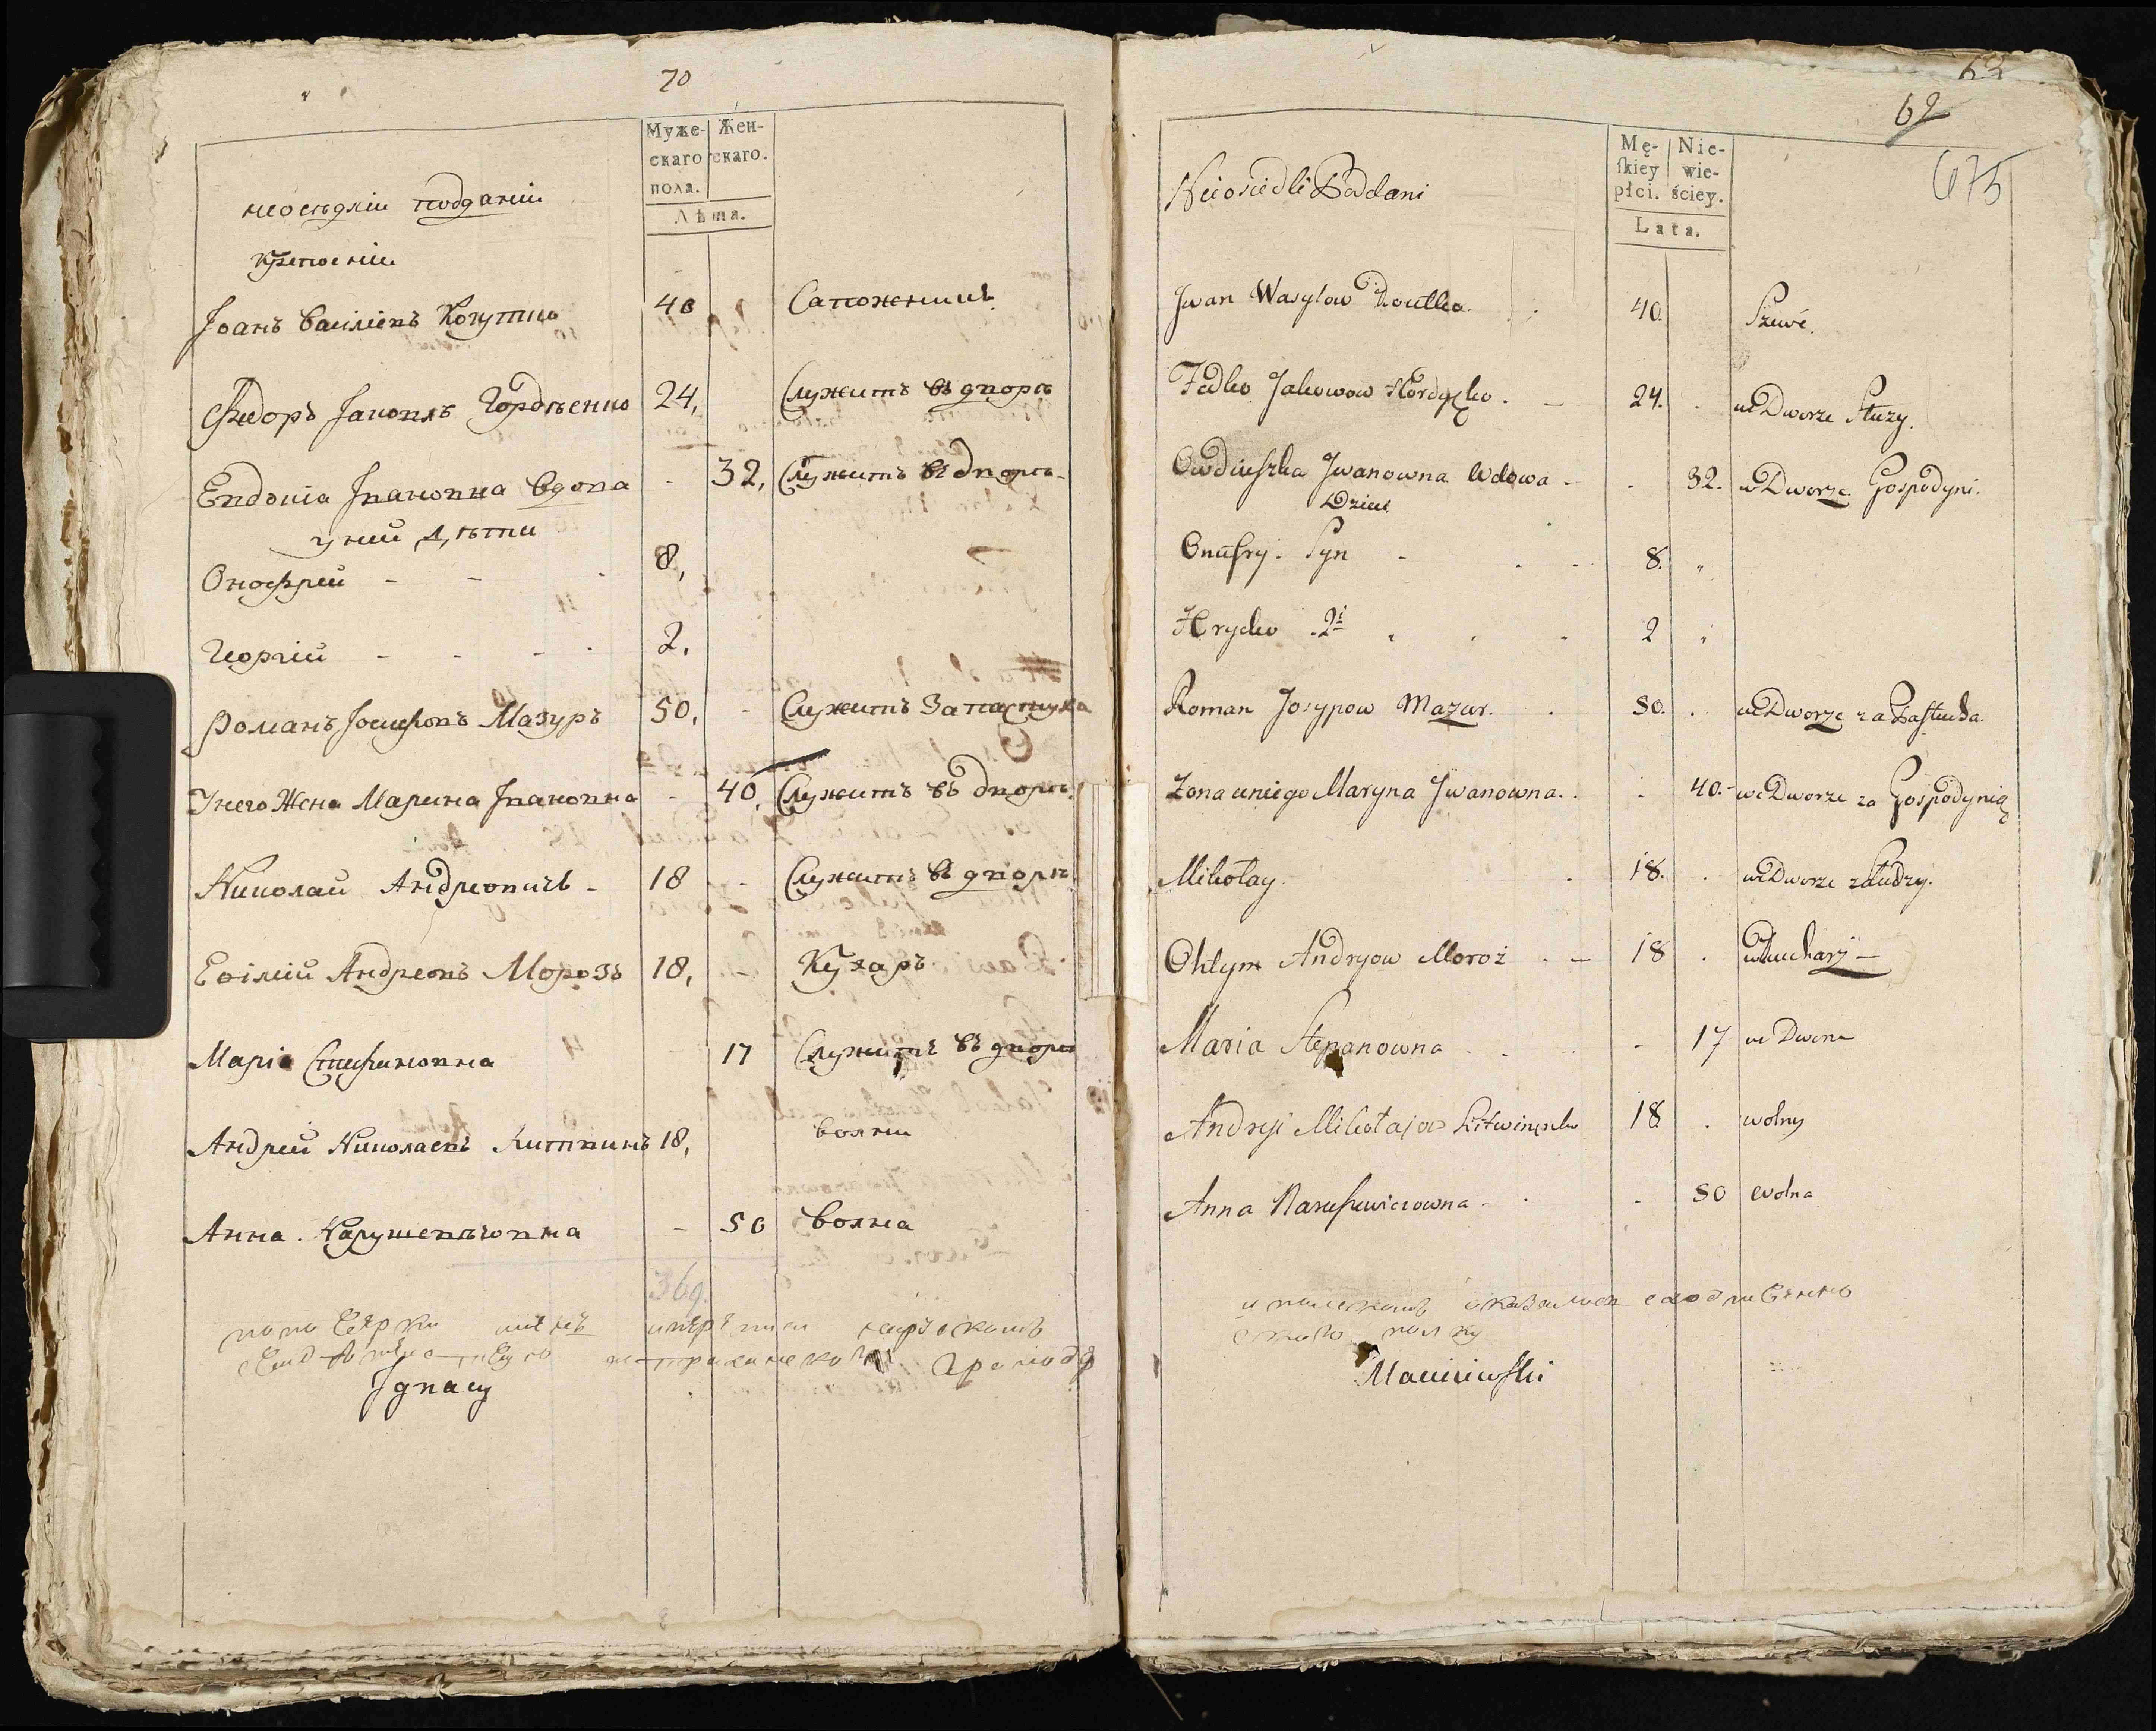 70
Муже- Жен-
скаго скаго.
пола.
Лѣта.
неоседліи подданіи
крепосніи
Іоанъ Василіевъ Когутко 40 Сапожникъ
Ѳедоръ Іаковлъ Гордѣенко 24, Служитъ въ дворѣ
Евдокіа Івановна вдова - 32, Служитъ въ дворѣ
у ней дѣти
Онофрей - - 8,
Георгій - - - 2,
Романъ Іосифовъ Мазуръ 50, - Служитъ за пастуха
У него Жена Марина Івановна - 40, Служитъ въ дворѣ
Николай Андреевичъ - 18 - Служитъ въ дворѣ
Евімій Андреевъ Морозъ 18, - Кухаръ
Маріа Стефановна 17 Служитъ въ дворѣ
Андрей Николаевъ Литвинъ 18, волни
Анна Нарушевичовна - 50 волна
369.
Ignacy
63
62
675
Mę- Nie-
skiey wie-
płci. ściey.
Lata.
Nieosiedli Poddani
Jwan Wasylow 40. Szewc.
Fedko Jakowow Hordyęko 24. we Dworze Służy.
Owdiuszka Jwanowna Wdowa - 32. w Dworze Gospodyni.
Dzieci
Onufry Syn - 8.
Hrycko 2i 2
Roman Josypow Mazur. 50. we Dworze za Pastucha.
Żona u niego Maryna Jwanowna. 40. we Dworze za Gospodynią
Mikołay 18. we Dworze
Okłym Andryow Moroz - 18 w Kucharz -
Maria Stepanowna - 17 we Dworze
Andryi Mikołajow Litwinęnko 18 wolny
Anna Naruszewiczowna - 50 wolna
Maciuiewski